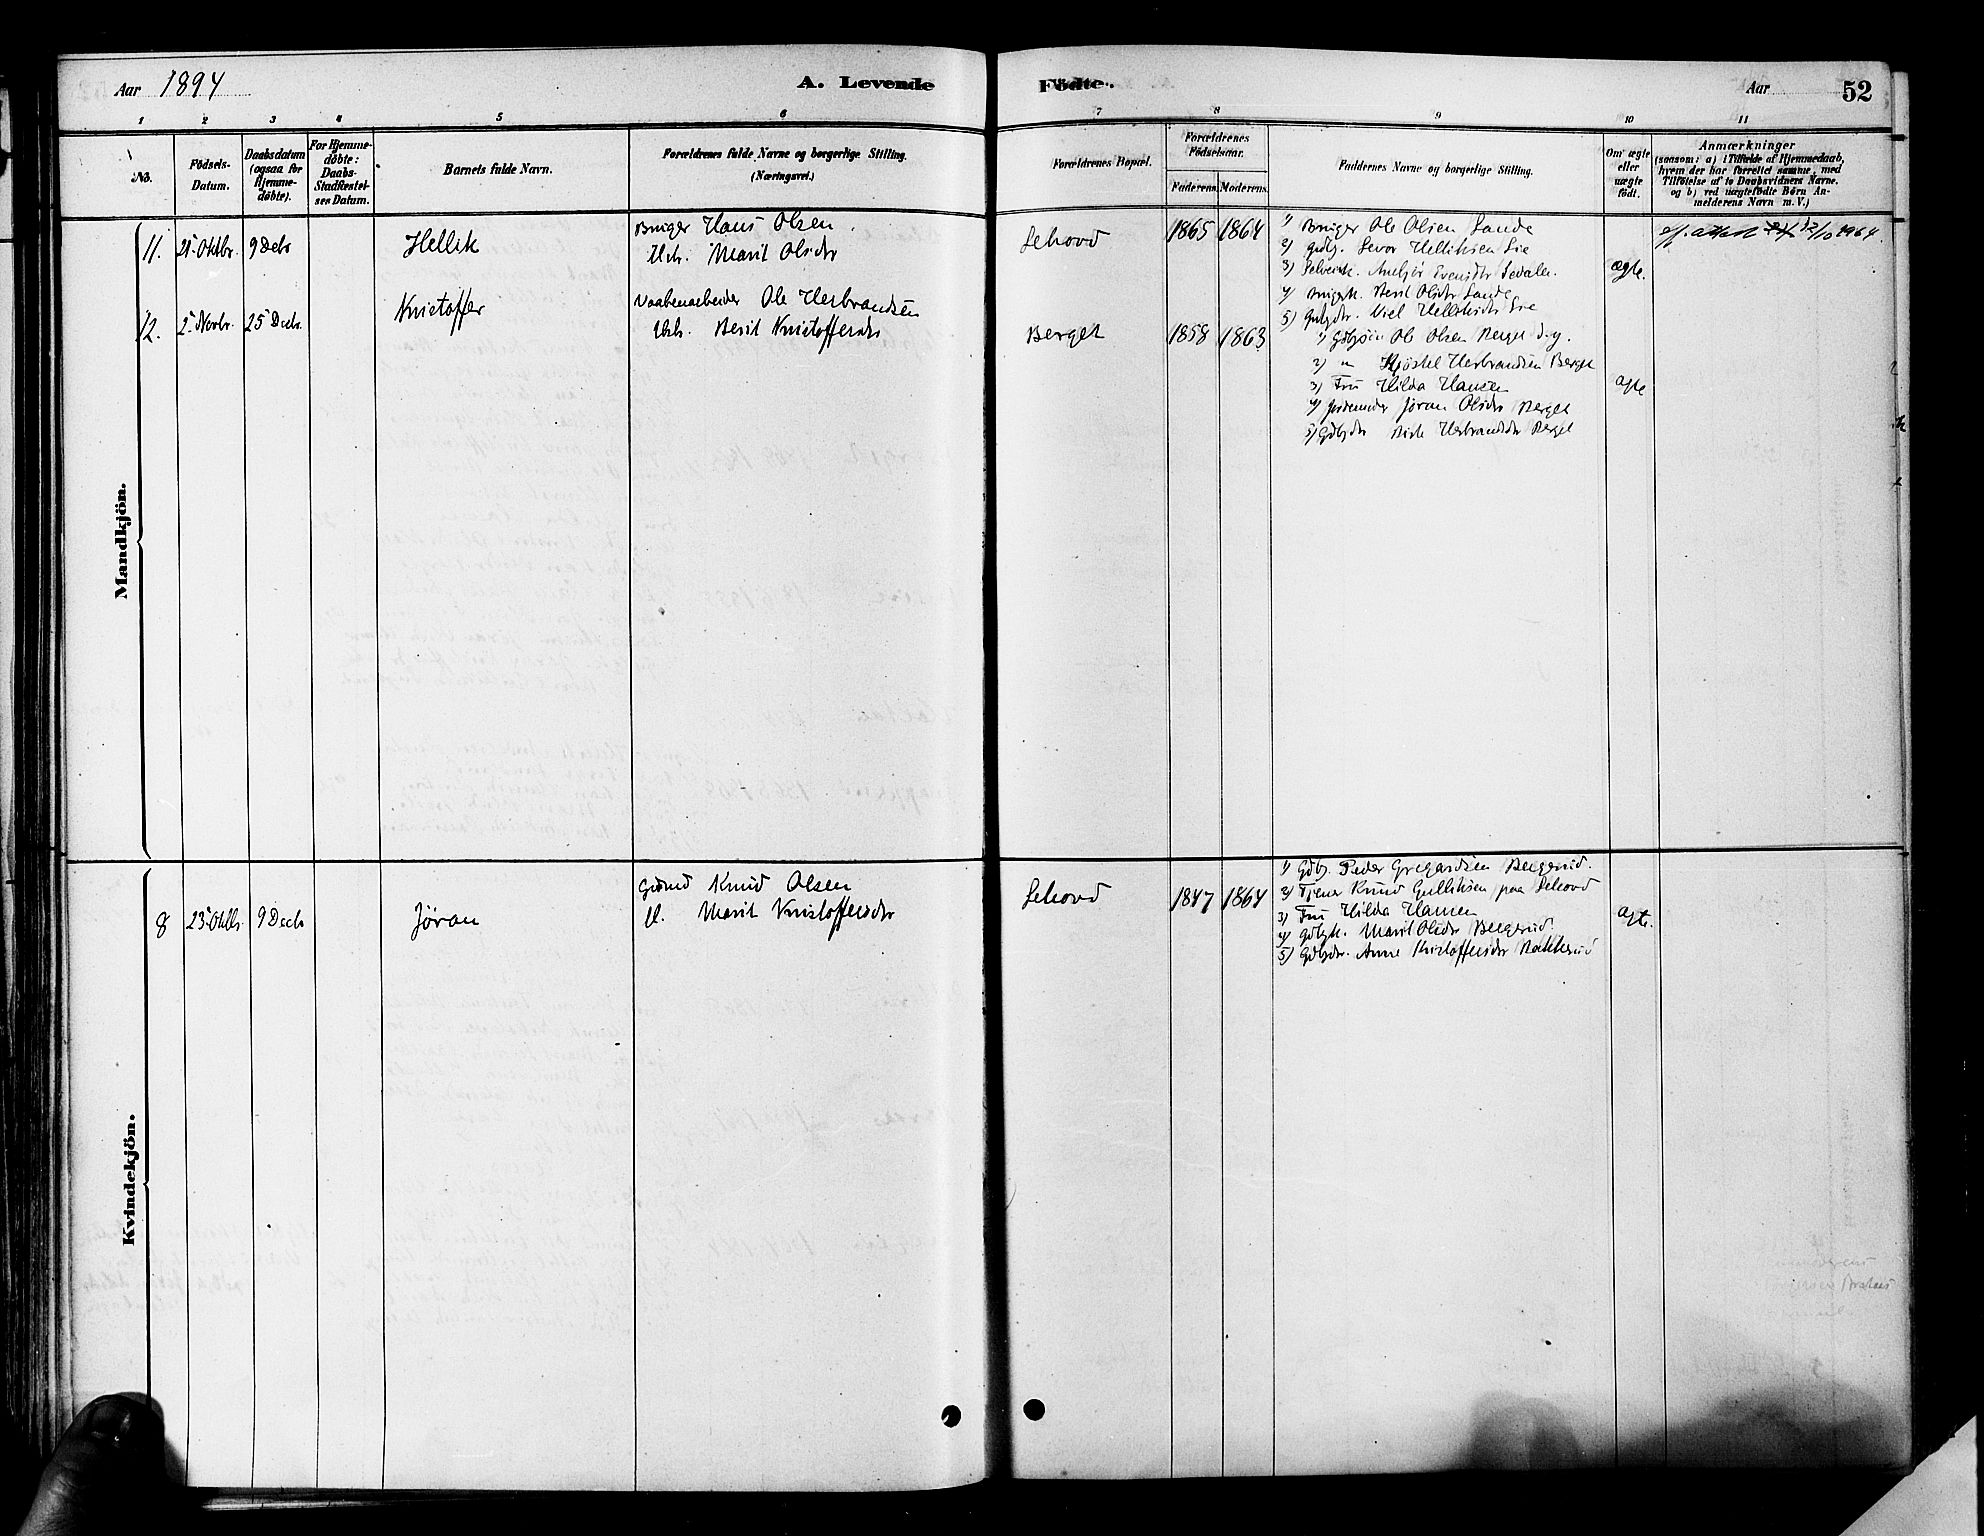 Aar 1894
A. Levende
Födte.
Aar
52
1 2 3 4 5 6 7 8 9 10 11
No.
Födsels-
Datum.
Daabsdatum
(ogsaa for
Hjemme-
døbte).
For Hjemme-
døbte:
Daabs-
Stadfæstel-
ses Datum.
Barnets fulde Navn.
Forældrenes fulde Navne og borgerlige Stilling.
(Næringsvei.)
Forældrenes Bopæl.
Forældrenes
Födselsaar.
Faderens. Moderens.
Faddernes Navne og borgerlige Stilling.
Om ægte
eller
uægte
født.
Anmærkninger
(saasom: a) i Tilfælde af Hjemmedaab,
hvem der har forrettet samme, med
Tilföielse af to Daabsvidners Navne,
og b) ved uægtefødte Börn An-
melderens Navn m. V.)
Mandkjön.
11. 21. Oktbr. 9 Decbr Hellik
Bruger Hans Olsen
Marit Olsdtr
Lehovd 1865 1864
1) Bruger Ole Olsen Sande
2) Gdbr. Levor Helliksen Lie
3) Selveierk. Evensdtr
4) Brugerk. Berit Olsdtr Sande
5) Helliksdtr Lie
ægte.
attest 12/10 1964.
12. 2. Novbr. 25 Decbr. Kristoffer
Vaabenarbeider Ole Herbrandsen
Berit Kristoffersdtr
Berget 1858 1863
1) Gdbrsøn Ole Olsen Berget d.y.
2) " Kjøstel Herbrandsen Berget
3) Fru Hilda Hansen
4) Jordemoder Jøran Olsdtr Berget
5) Gdbrdtr Herbrandsdtr Berget
ægte
Kvindekjön.
8 23. Oktbr. 9 Decbr Jøran
Gbrd Knud Olsen
H. Marit Kristoffersdtr
Lehovd 1847 1864
1) Gdbr. Peder Gregardsen Bergerud.
2) Tjener Knud Gulliksen paa Lehovd
3) Fru Hilda Hansen
4) Gdbrk. Marit Olsdtr Bergerud.
5) Gdbrdtr. Anne Kristoffersdtr Bakkerud
ægte.